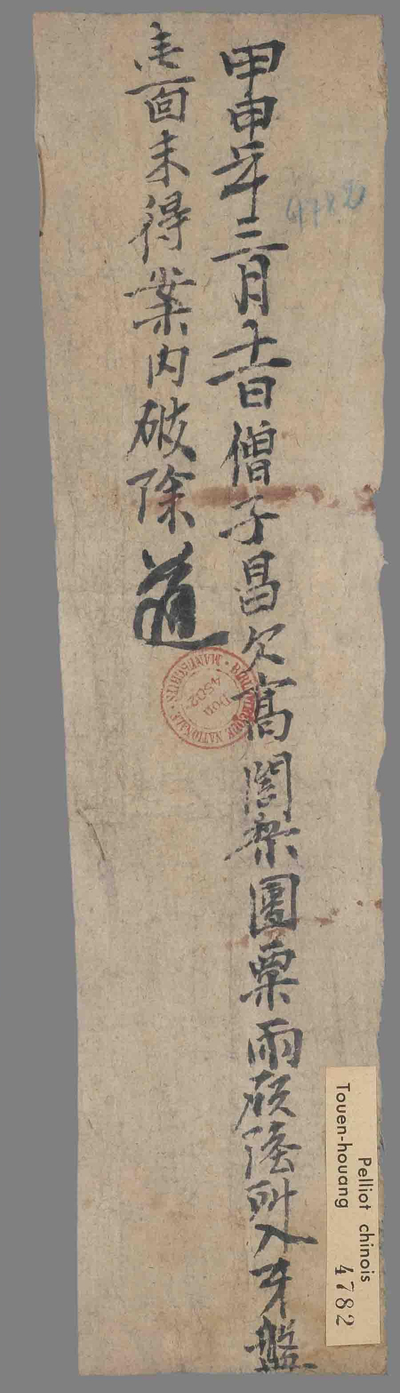 甲申年三月十一日僧子昌欠高闍梨團粟兩碩陸㪷入牙盤
壹面未得案內破除 道
4782
BIBLIOTHEQUE NATIONALE · MANUSCRITS ·
Don 4502
Pelliot chinois
Touen-houang
4782